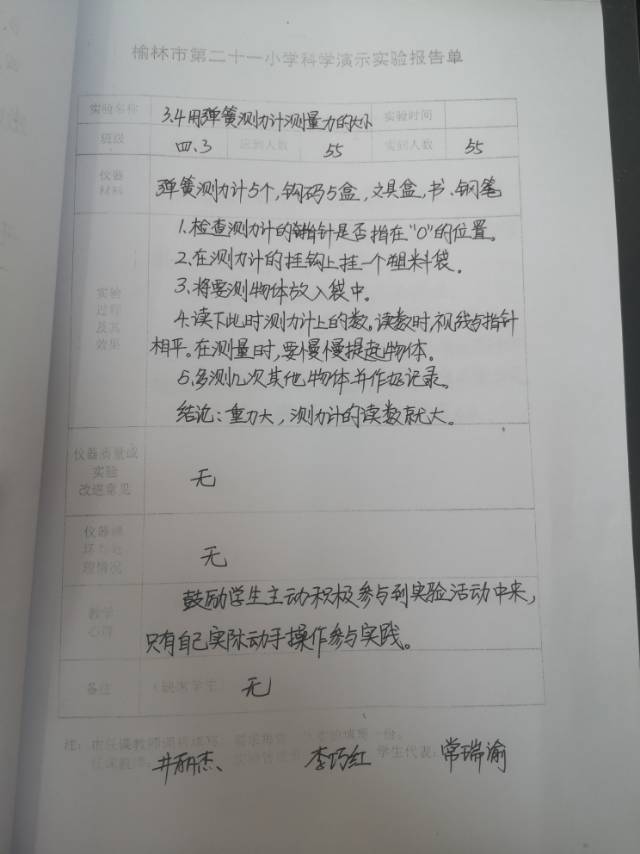 榆林市第二十一小学科学演示实验报告单
实验名称 3.4用弹簧测力计测量力的大小 实验时间
班级 四.3 应到人数 55 实到人数 55
仪器
材料
弹簧测力计5个,钩码5盒,文具盒,书、钢笔
实验
过程
及其
效果
1.检查测力计的指针是否指在"0"的位置。
2.在测力计的挂钩上挂一个塑料袋。
3.将要测物体放入袋中。
4.读下此时测力计上的数。读数时,视线与指针
相平。在测量时,要慢慢提起物体。
5.多测几次其他物体并作好记录。
结论:重力大,测力计的读数就大。
仪器质量或
实验
改进意见
无
仪器
理情况
无
教学
心得
鼓励学生主动积极参与到实验活动中来,
只有自己实际动手操作参与实践。
备注 (缺席学生) 无
注:由任课教师
井丽杰、 李巧红 学生代表: 常瑞渝